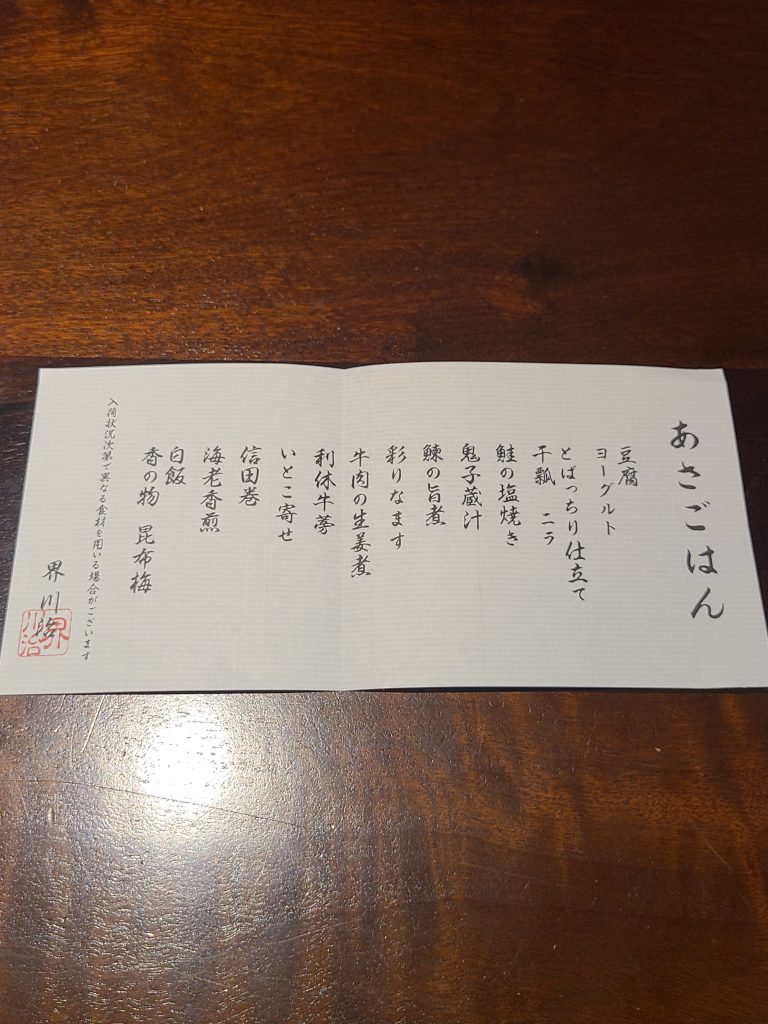 あさごはん
豆腐
ヨーグルト
とばっちり仕立て
干瓢 ニラ
鮭の塩焼き
鬼子蔵汁
鰊の旨煮
彩りなます
牛肉の生姜煮
利休牛蒡
いとこ寄せ
信田巻
海老香煎
白飯
香の物 昆布梅
入荷状況次第で異なる食材を用いる場合がございます
界 川治
界
川治